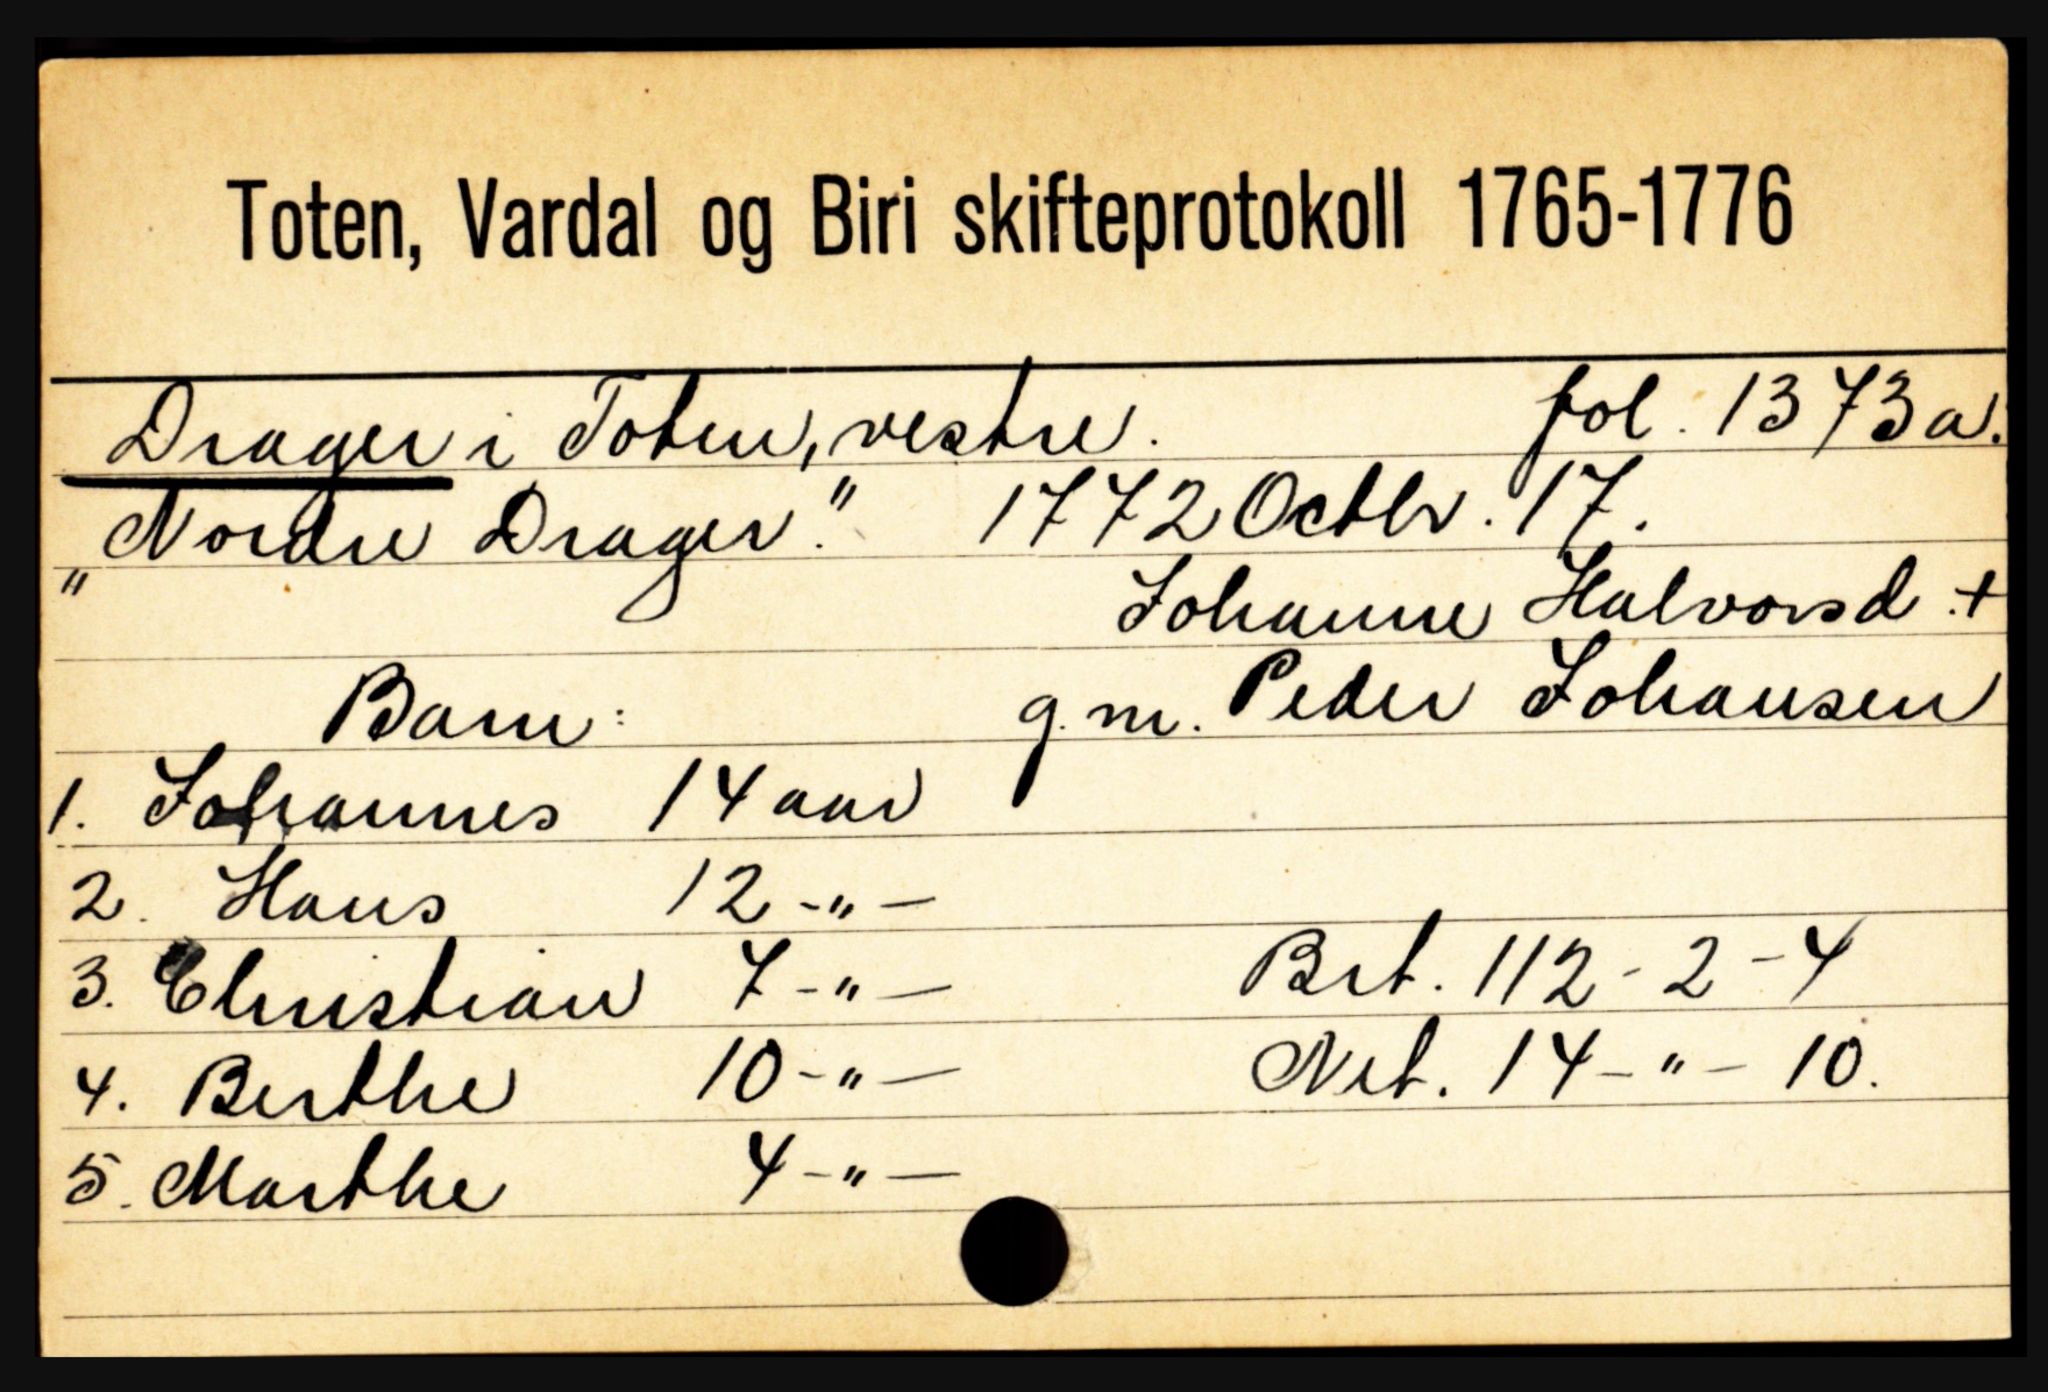 Toten, Vardal og Biri skifteprotokoll 1765-1776
Drager i Toten, vestre. fol. 1373a.
"Nordre Drager." 1772 Octbr. 17.
Johanne Halvorsd. +
Barn: g.m. Peder Johansen
1. Johannes 14 aar
2. Hans 12 -"-
3. Christian 7 -"- Brt. 112-2-4
4. Berthe 10 -"- Net. 14-"-10.
5. Marthe 4 -"-